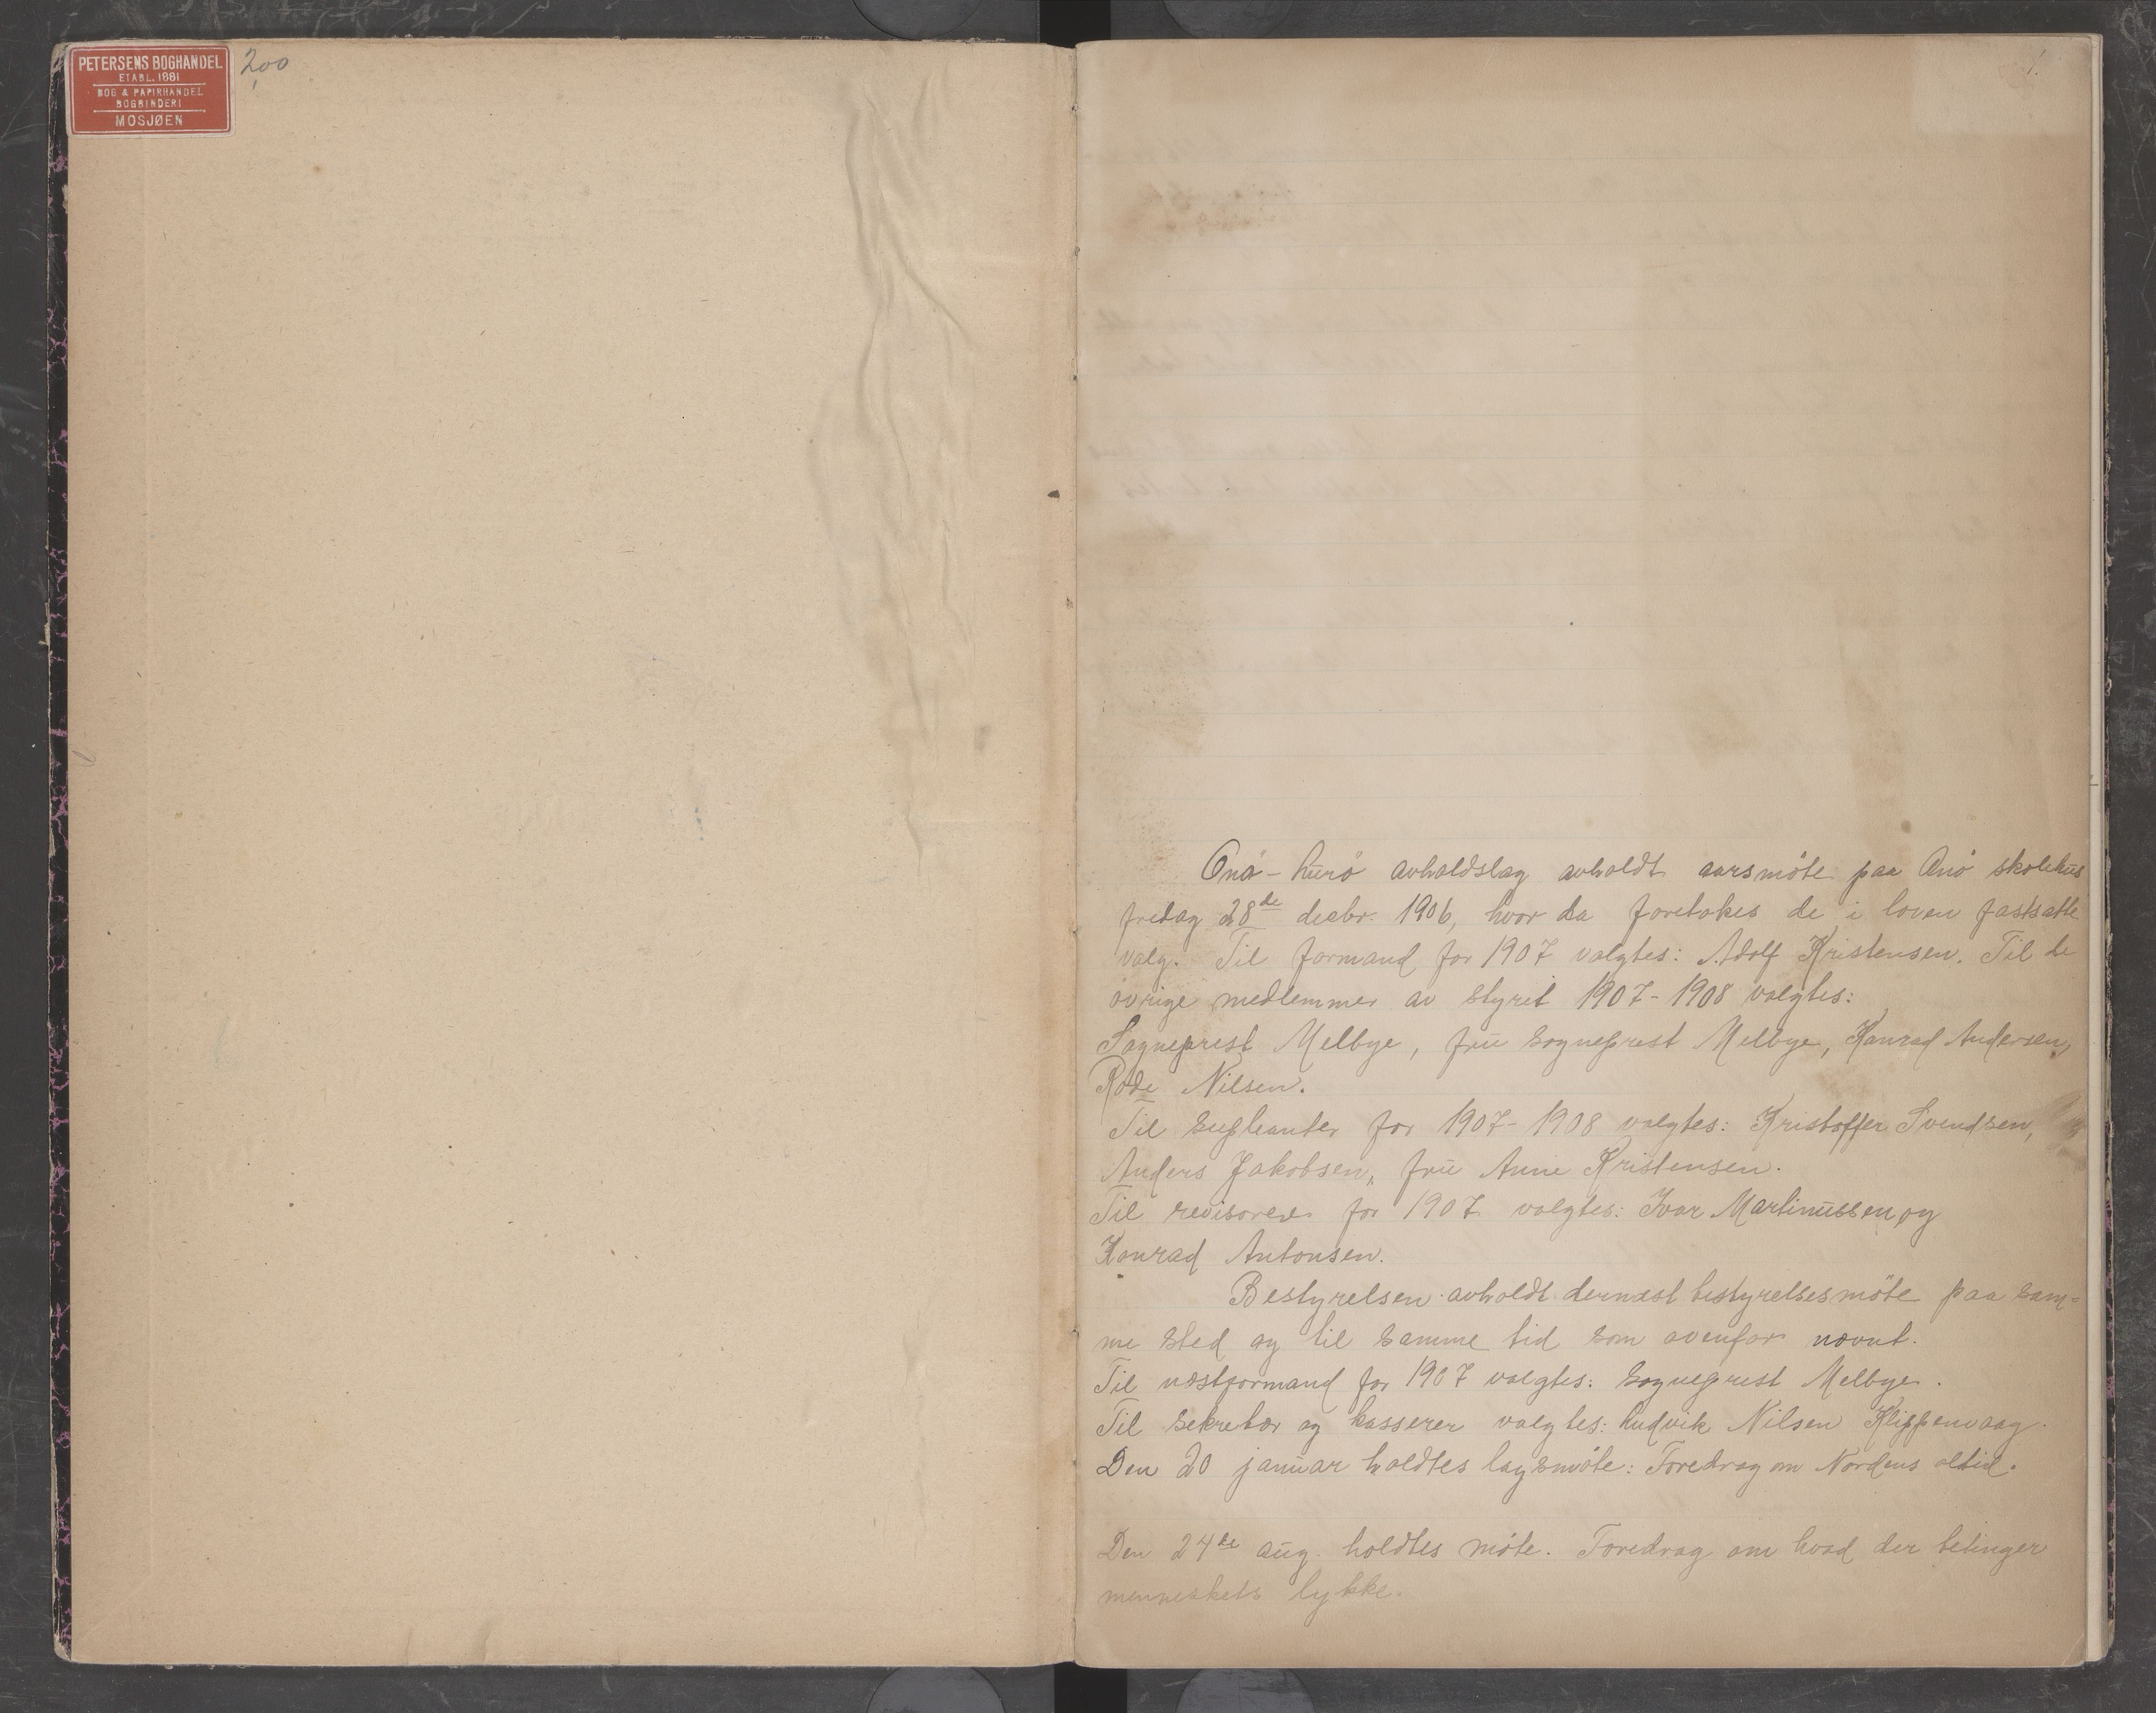 PETERSENS BOGHANDEL
ETABL. 1881
BOG & PAPIRHANDEL
BOGBINDERI
MOSJØEN
2,00
1.
Onö - Lurö avholdslag avholdt aarsmöte paa Onö skolehus
fredag 28de decbr. 1906, hvor da foretokes de i loven fastsatte
valg. Til formand for 1907 valgtes: Adolf Kristensen. Til de
övrige medlemmer av styret 1907-1908 valgtes:
Sogneprest Melbye, frü sogneprest Melbye, Konrad Andersen,
Nilsen.
Til supleanter for 1907-1908 valgtes: Kristoffer Svendsen,
Anders Jakobsen, frü Anne Kristensen.
Til revisorer for 1907 valgtes: Ivar Martinüssen og
Konrad Antonsen.
Bestyrelsen avholdt dernæst bestyrelsesmöte paa sam-
me sted og til samme tid som ovenfor nævnt.
Til næstformand for 1907 valgtes: Sogneprest Melbye.
Til sekretær og kasserer valgtes: Ludvik Nilsen Klippenvaag.
Den 20 janüar holdtes lagsmöte: Foredrag om Nordens oltid.
Den 24de aüg. holdtes möte. Foredrag om hvad der betinger
menneskets lykke.